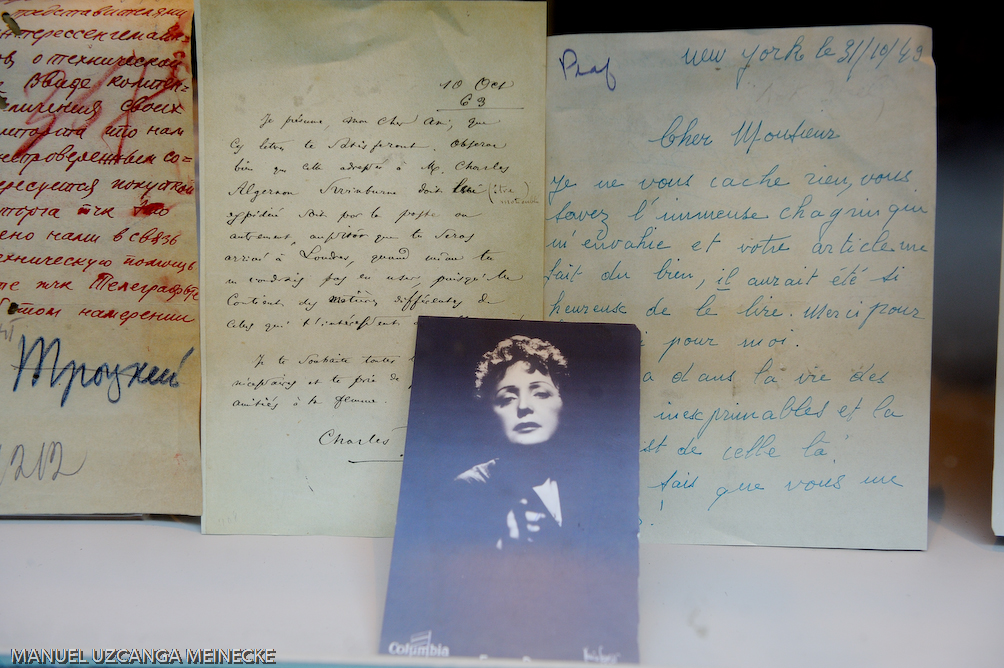 представителями
нтерессенгемайн-
ов о технической
в виде компен-
личения своих
мторга что нам
непроверенным со=
ересуется покупкой
торга тчк
ено нами в связь
ехническую помощь
те тчк Телеграфьте
том намерении
Троцкий
212
10 Oct
63
Je présume, mon cher ami, que
ces lettres te satisferont. Observe
bien que celle adressée à M. Charles
Algernon Swinburne doit être (être
expédiée soit par la poste ou
autrement, aussitôt que tu seras
arrivé à Londres, quand même tu
n'voudrais pas en user, puisqu'elle
contient des matières différentes de
celles qui t'intéressent.
Je te souhaite toutes
et te prie de
amitiés à ta femme.
Charles
Piaf
New York le 31/10/49
Cher Monsieur
Je ne vous cache rien, vous
savez l'immense chagrin qui
m'envahie et votre article me
fait du bien, il aurait été si
heureuse de le lire. Merci pour
pour moi.
a dans la vie des
inexprimables et la
st de celle là
fait que vous me
!
Columbia
MANUEL UZCANGA MEINECKE